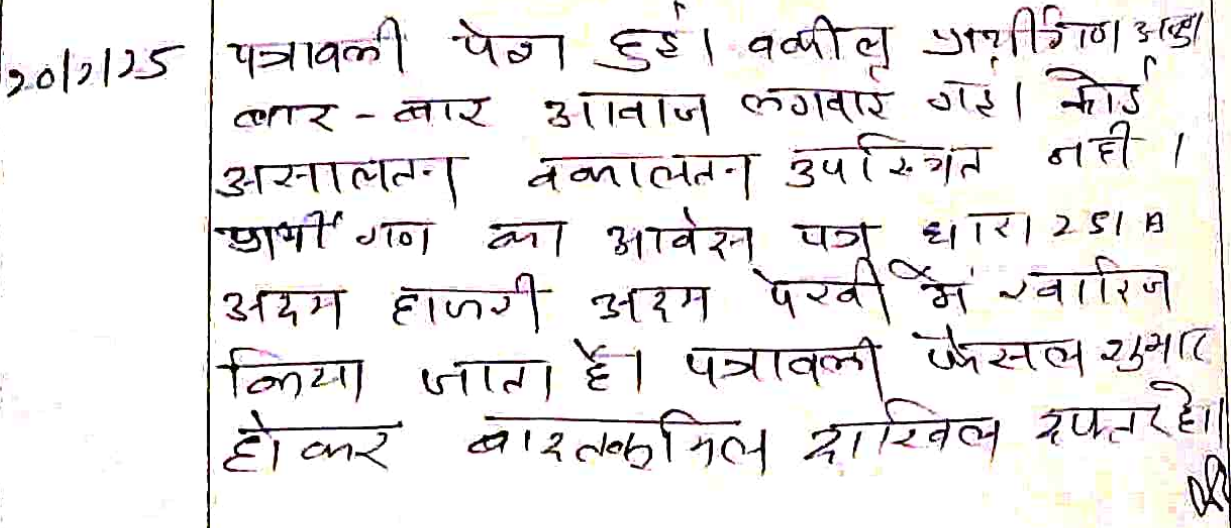 20/2/25 पत्रावली पेश हुई। वकील प्रार्थीगण
बार-बार आवाज लगवाई गई। कोई
असालतन वकालतन उपस्थित नही।
प्रार्थी गण का आवेदन पत्र धारा 251 A
अदम हाजरी अदम पैरवी में खारिज
किया जाता है। पत्रावली फैसल शुमार
होकर बादतकमिल दाखिल दफ्तर हो।